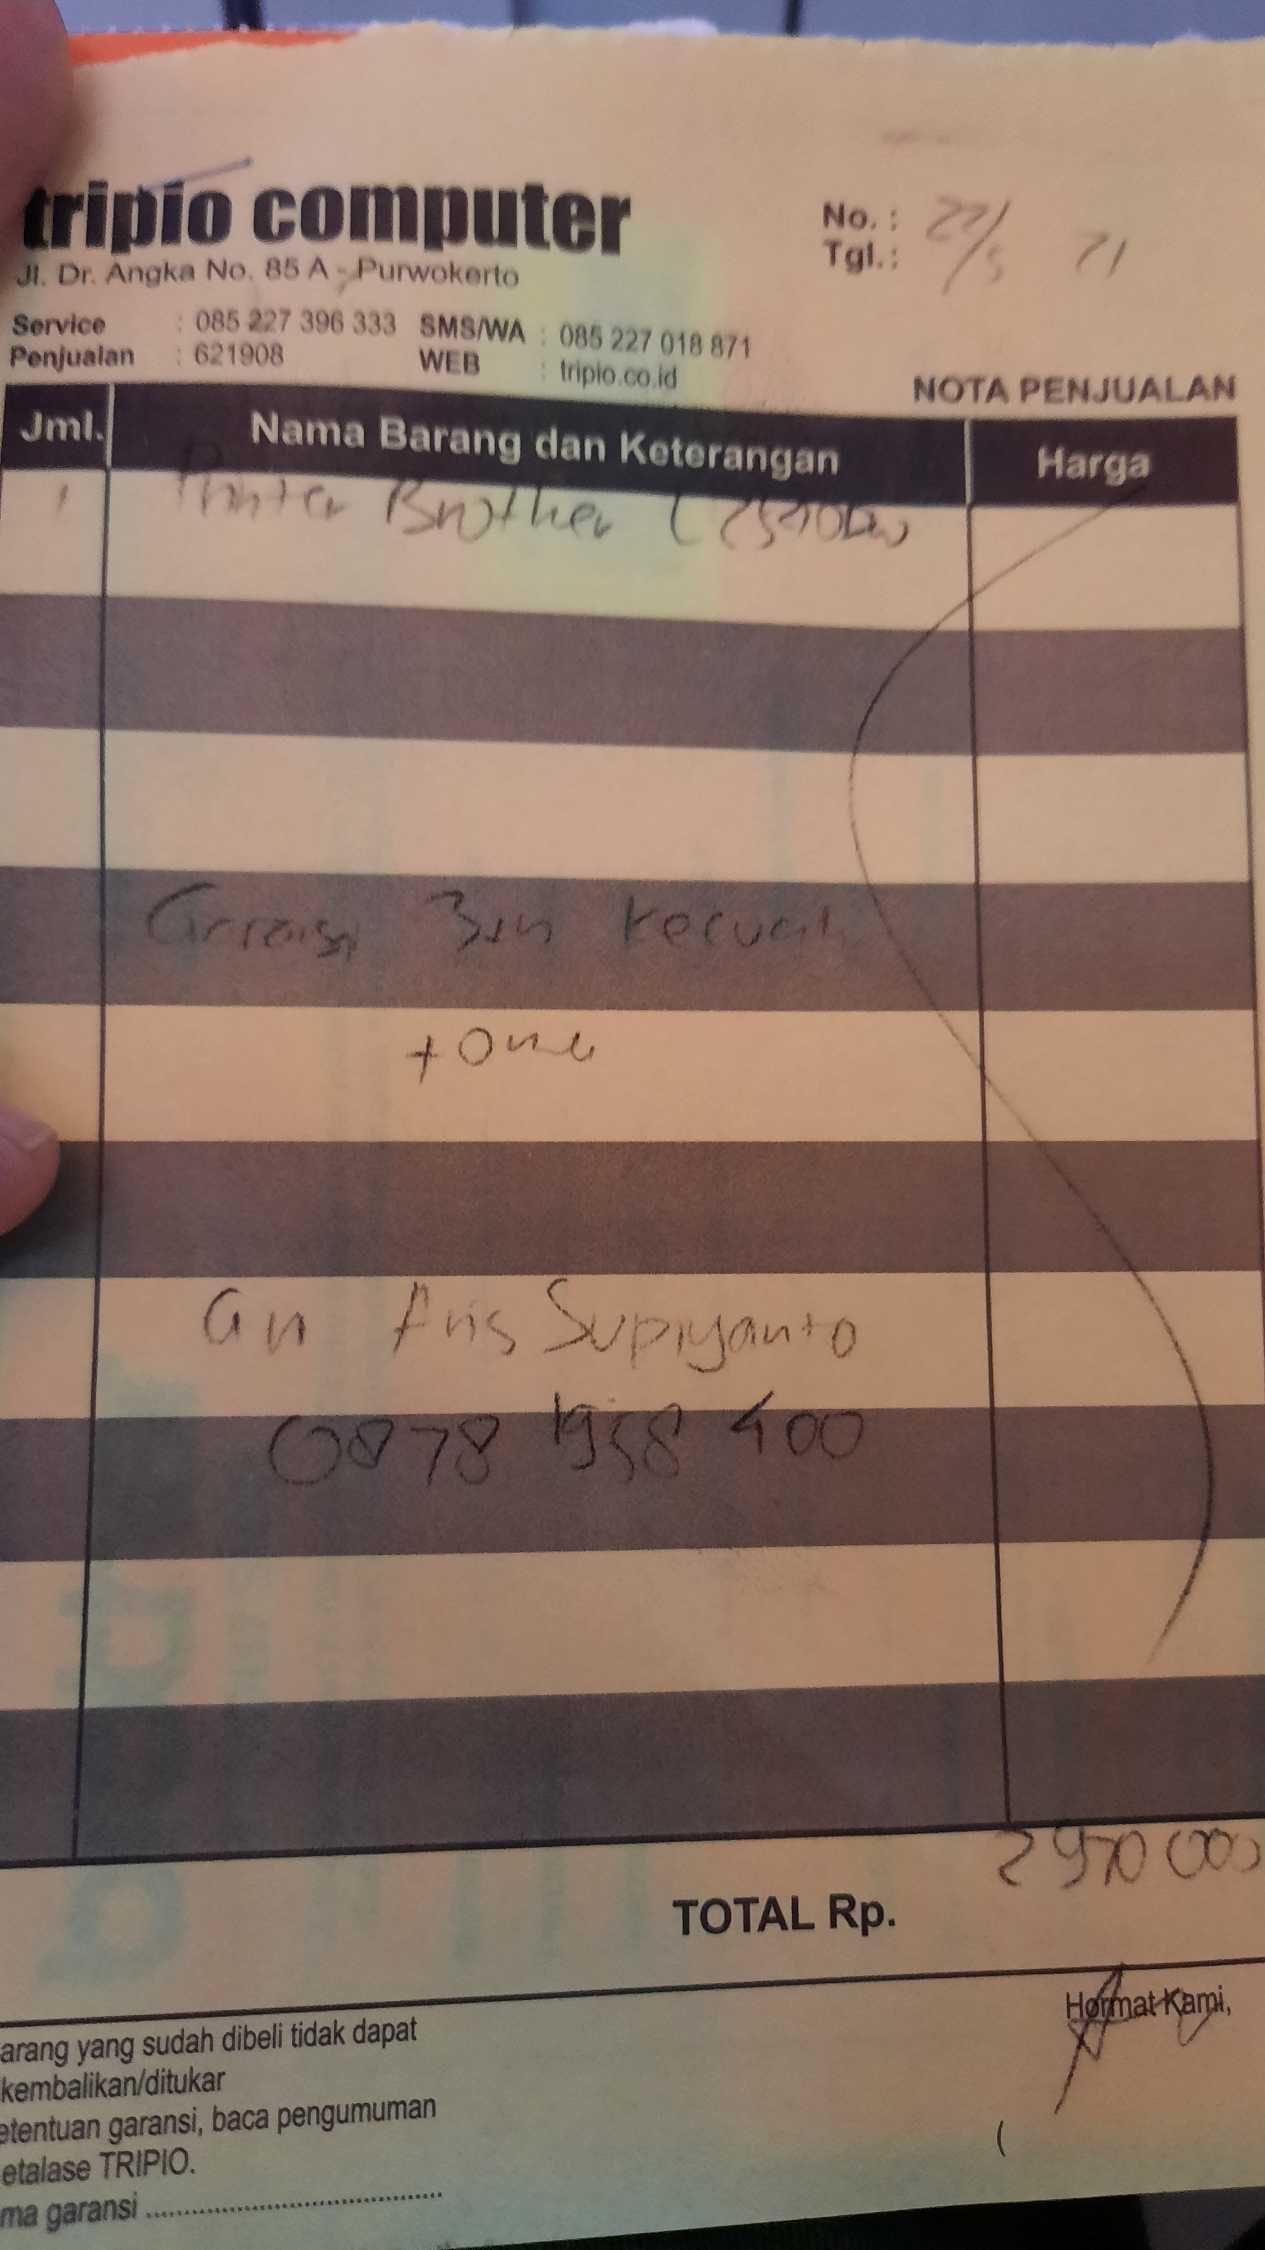 tripio computer
Jl. Dr. Angka No. 85 A - Purwokerto
Service : 085 227 396 333 SMS/WA : 085 227 018 871
Penjualan : 621908 WEB : tripio.co.id
No. :
Tgl. : 22/5 21
NOTA PENJUALAN
Jml. Nama Barang dan Keterangan Harga
1 Printer Brother L2540DW
3
+one
an Aris Supiyanto
0878 1958 400
2970 000
TOTAL Rp.
Hormat Kami,
arang yang sudah dibeli tidak dapat
kembalikan/ditukar
etentuan garansi, baca pengumuman
etalase TRIPIO.
ma garansi
(